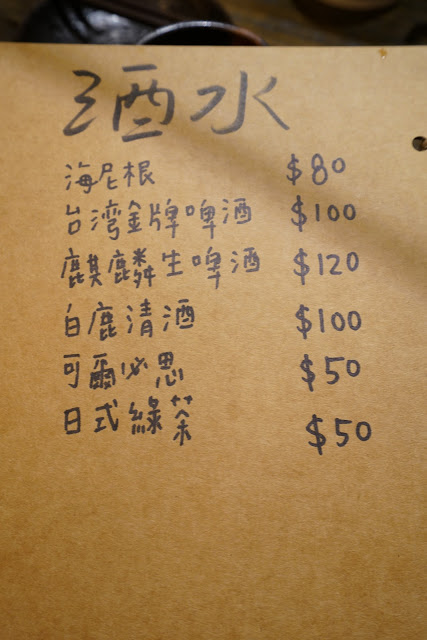 酒水
海尼根 $80
台灣金牌啤酒 $100
麒麟生啤酒 $120
白鹿清酒 $100
可爾必思 $50
日式綠茶 $50